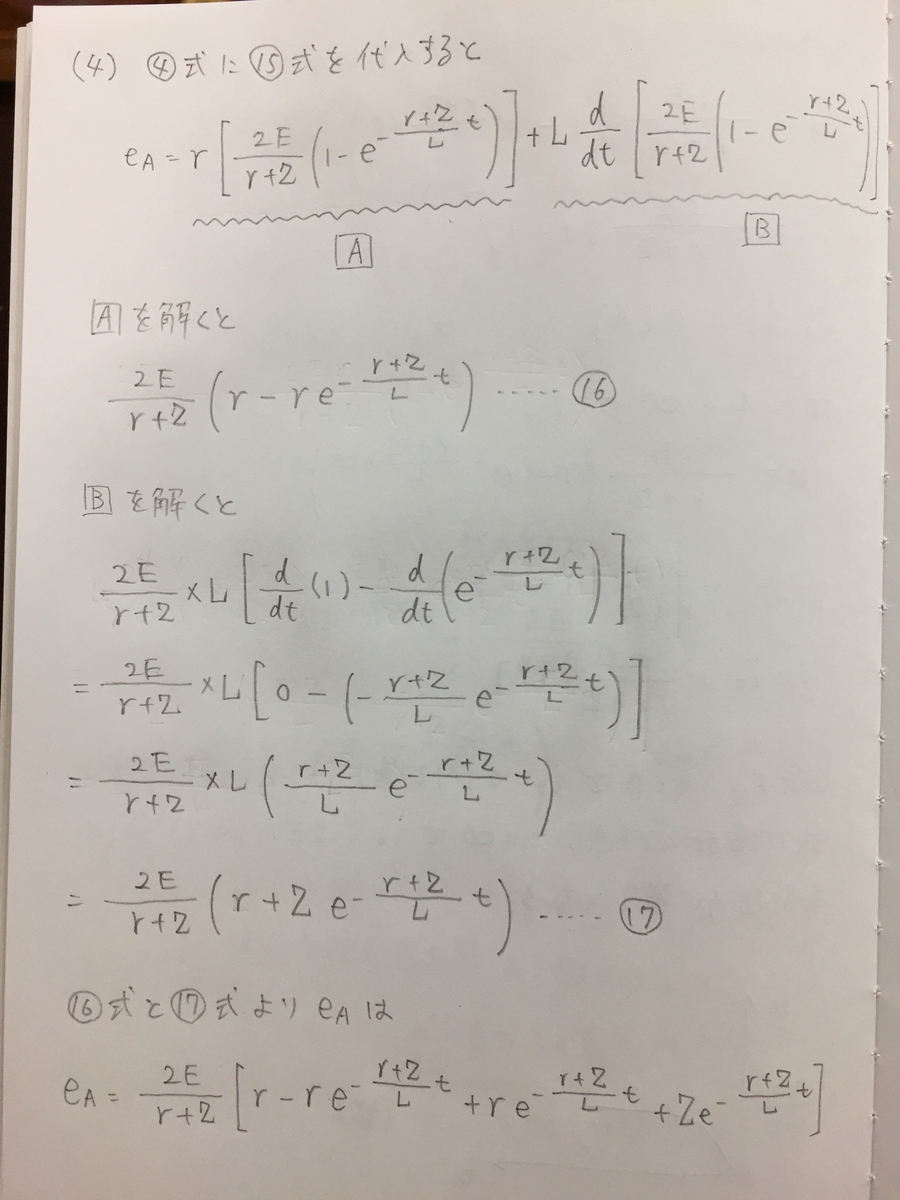 (4) ④式に⑮式を代入すると
e_A = r [ 2E/(r+Z) (1 - e^{-(r+Z)/L t}) ] + L d/dt [ 2E/(r+Z) (1 - e^{-(r+Z)/L t}) ]
A B
Aを解くと
2E/(r+Z) (r - re^{-(r+Z)/L t}) ...... ⑯
Bを解くと
2E/(r+Z) × L [ d/dt (1) - d/dt (e^{-(r+Z)/L t}) ]
= 2E/(r+Z) × L [ 0 - (-(r+Z)/L e^{-(r+Z)/L t}) ]
= 2E/(r+Z) × L ( (r+Z)/L e^{-(r+Z)/L t} )
= 2E/(r+Z) ( r + Z e^{-(r+Z)/L t} ) ...... ⑰
⑯式と⑰式より e_A は
e_A = 2E/(r+Z) [ r - re^{-(r+Z)/L t} + re^{-(r+Z)/L t} + Ze^{-(r+Z)/L t} ]